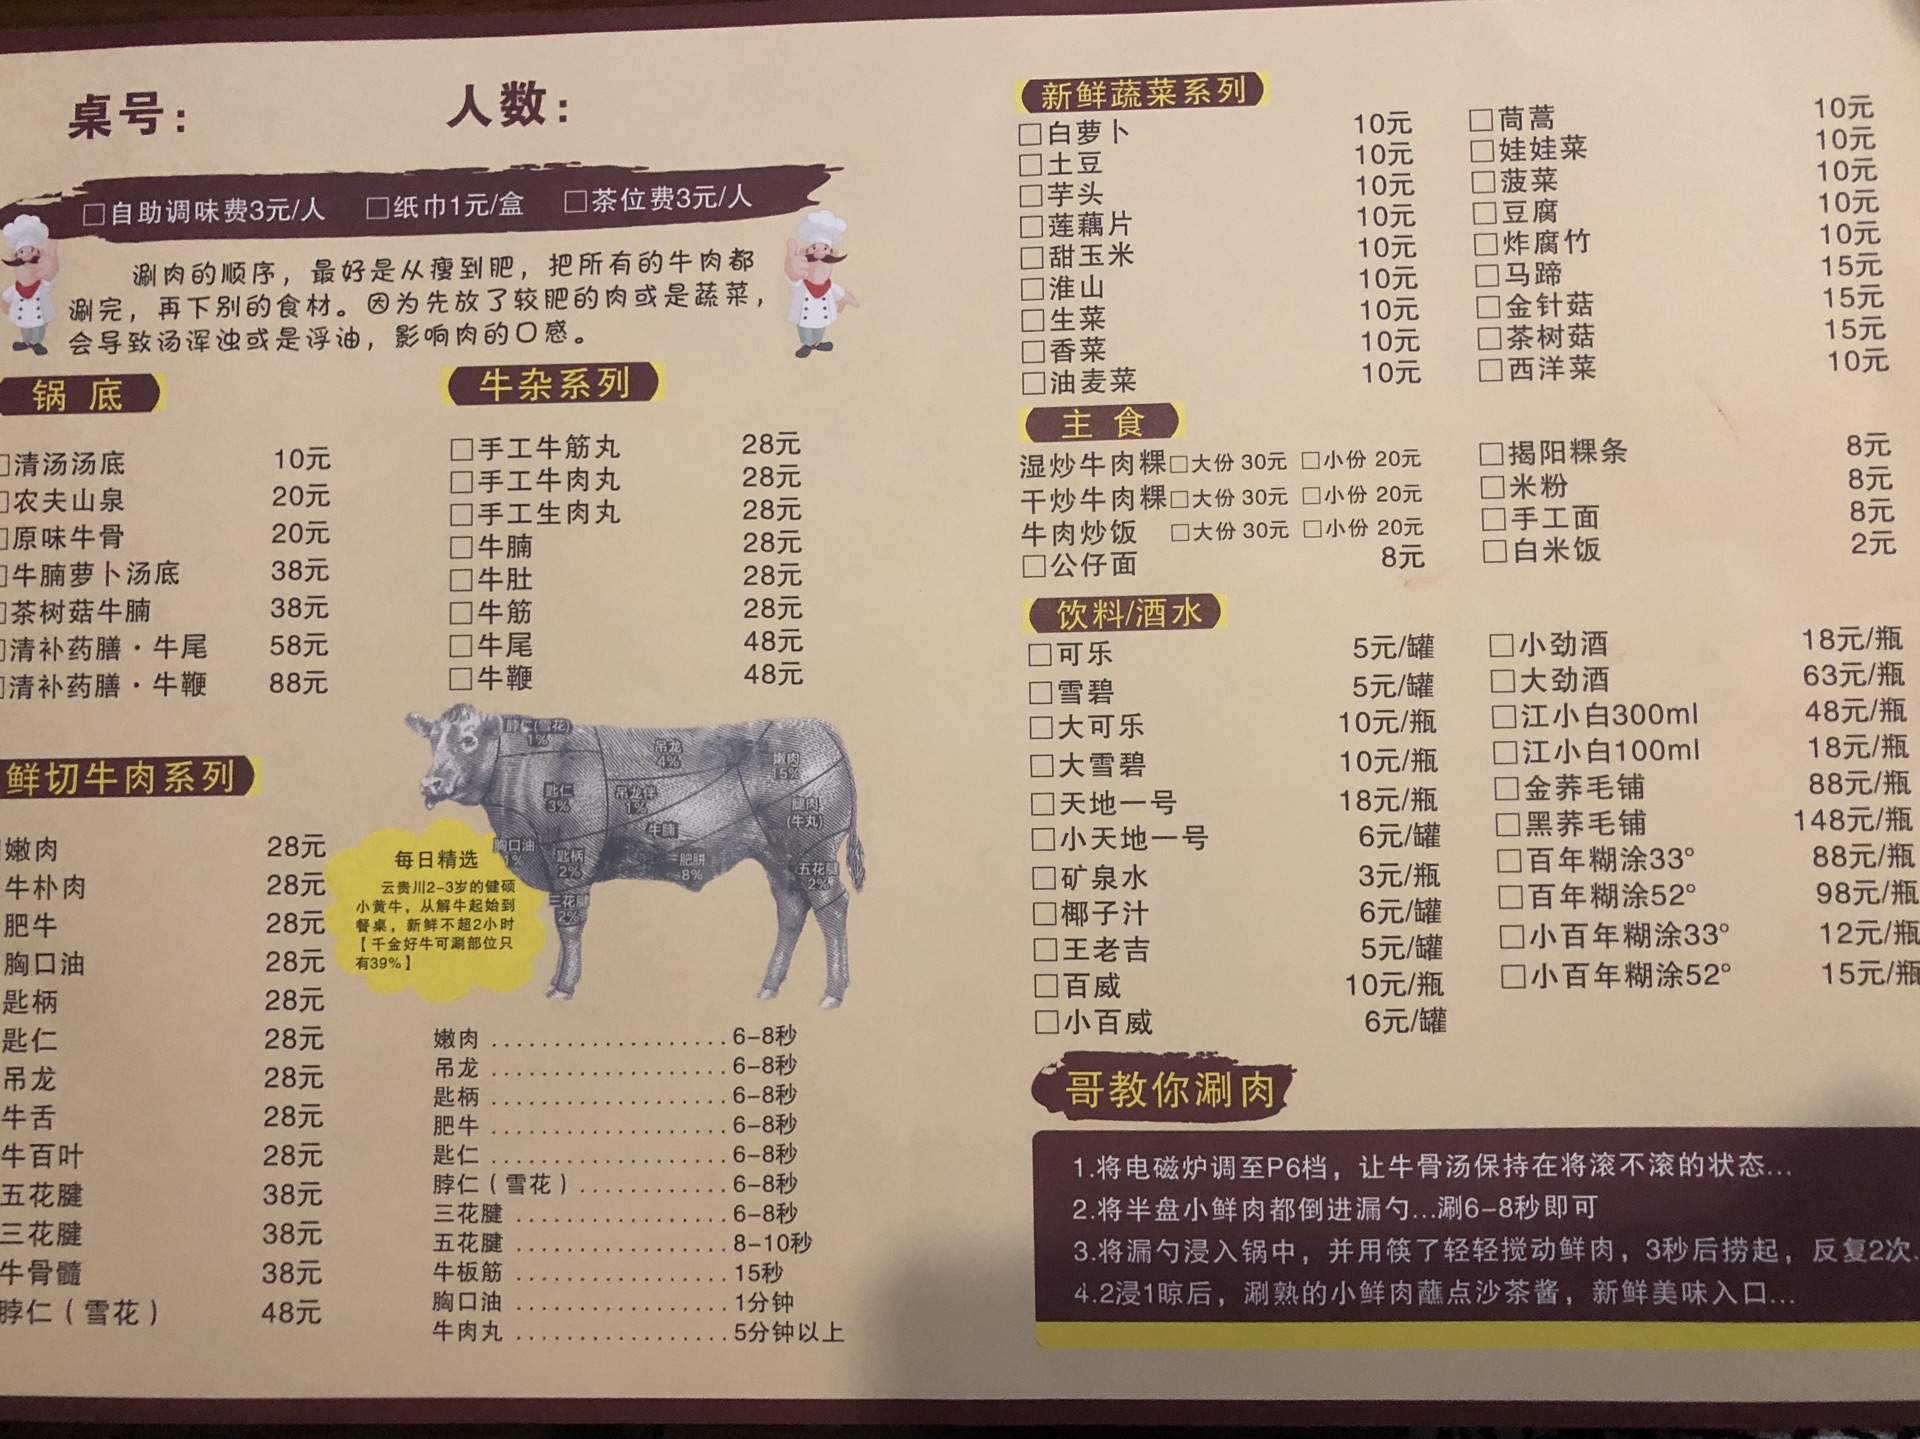 桌号： 人数：
□自助调味费3元/人 □纸巾1元/盒 □茶位费3元/人
涮肉的顺序，最好是从瘦到肥，把所有的牛肉都
涮完，再下别的食材。因为先放了较肥的肉或是蔬菜，
会导致汤浑浊或是浮油，影响肉的口感。
锅 底
□清汤汤底 10元
□农夫山泉 20元
□原味牛骨 20元
□牛腩萝卜汤底 38元
□茶树菇牛腩 38元
□清补药膳·牛尾 58元
□清补药膳·牛鞭 88元
牛杂系列
□手工牛筋丸 28元
□手工牛肉丸 28元
□手工生肉丸 28元
□牛腩 28元
□牛肚 28元
□牛筋 28元
□牛尾 48元
□牛鞭 48元
鲜切牛肉系列
嫩肉 28元
牛朴肉 28元
肥牛 28元
胸口油 28元
匙柄 28元
匙仁 28元
吊龙 28元
牛舌 28元
牛百叶 28元
五花腱 38元
三花腱 38元
牛骨髓 38元
脖仁（雪花） 48元
脖仁(雪花)
1%
吊龙
4%
嫩肉
15%
匙仁
3%
吊龙伴
1%
腿肉
(牛丸)
牛腩
胸口油
1%
匙柄
2%
肥胼
8%
五花腱
2%
三花腱
2%
每日精选
云贵川2-3岁的健硕
小黄牛，从解牛起始到
餐桌，新鲜不超2小时
【千金好牛可涮部位只
有39%】
嫩肉 .................... 6-8秒
吊龙 .................... 6-8秒
匙柄 .................... 6-8秒
肥牛 .................... 6-8秒
匙仁 .................... 6-8秒
脖仁（雪花）............. 6-8秒
三花腱 .................. 6-8秒
五花腱 .................. 8-10秒
牛板筋 .................. 15秒
胸口油 .................. 1分钟
牛肉丸 .................. 5分钟以上
新鲜蔬菜系列
□白萝卜 10元
□土豆 10元
□芋头 10元
□莲藕片 10元
□甜玉米 10元
□淮山 10元
□生菜 10元
□香菜 10元
□油麦菜 10元
□茼蒿 10元
□娃娃菜 10元
□菠菜 10元
□豆腐 10元
□炸腐竹 10元
□马蹄 15元
□金针菇 15元
□茶树菇 15元
□西洋菜 10元
主 食
湿炒牛肉粿□大份 30元 □小份 20元
干炒牛肉粿□大份 30元 □小份 20元
牛肉炒饭 □大份 30元 □小份 20元
□公仔面 8元
□揭阳粿条 8元
□米粉 8元
□手工面 8元
□白米饭 2元
饮料/酒水
□可乐 5元/罐
□雪碧 5元/罐
□大可乐 10元/瓶
□大雪碧 10元/瓶
□天地一号 18元/瓶
□小天地一号 6元/罐
□矿泉水 3元/瓶
□椰子汁 6元/罐
□王老吉 5元/罐
□百威 10元/瓶
□小百威 6元/罐
□小劲酒 18元/瓶
□大劲酒 63元/瓶
□江小白300ml 48元/瓶
□江小白100ml 18元/瓶
□金荞毛铺 88元/瓶
□黑荞毛铺 148元/瓶
□百年糊涂33° 88元/瓶
□百年糊涂52° 98元/瓶
□小百年糊涂33° 12元/瓶
□小百年糊涂52° 15元/瓶
哥教你涮肉
1.将电磁炉调至P6档，让牛骨汤保持在将滚不滚的状态...
2.将半盘小鲜肉都倒进漏勺...涮6-8秒即可
3.将漏勺浸入锅中，并用筷了轻轻搅动鲜肉，3秒后捞起，反复2次.
4.2浸1晾后，涮熟的小鲜肉蘸点沙茶酱，新鲜美味入口...